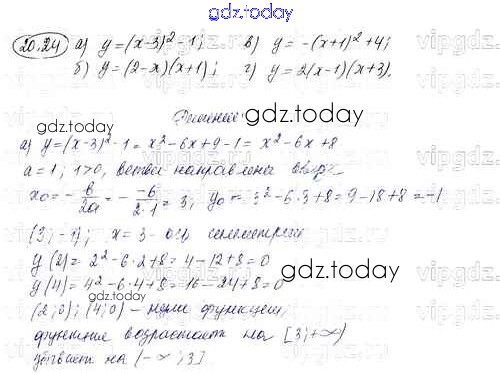 gdz.today
20.24 а) y=(x-3)²-1; в) y=-(x+1)²+4;
б) y=(2-x)(x+1); г) y=2(x-1)(x+3).
gdz.today
Решение:
а) y=(x-3)²-1=x²-6x+9-1=x²-6x+8
a=1; 1>0, ветви направлены вверх
x₀=-b/2a=-(-6)/2·1=3; y₀=3²-6·3+8=9-18+8=-1
(3;-1); x=3 - ось симметрии
y(2)=2²-6·2+8=4-12+8=0
gdz.today
y(4)=4²-6·4+8=16-24+8=0
gdz.today
(2;0); (4;0) - нули функции
функция возрастает на [3;+∞)
убывает на (-∞;3]